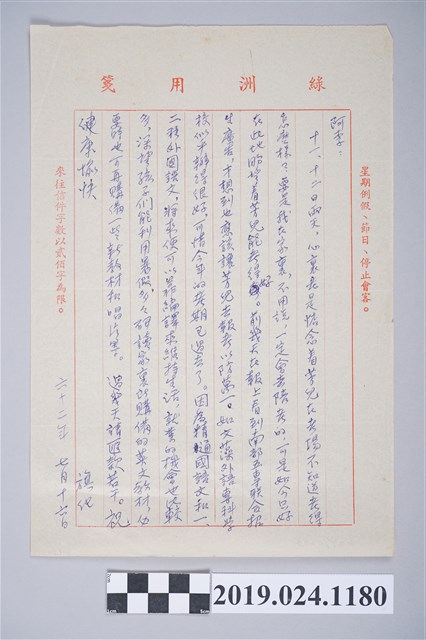 綠洲用箋
星期例假、節日、停止會客。
阿李：
十一、十二日兩天，心裏老是惦念着芳兒在考場不知道考得
怎麼樣？要是我在家裏，不用說，一定會去陪考的，可是如今只好
在此地盼望着芳兒能考得好。前幾天在報上看到南部五專聯合招
生廣告，才想到也應該讓芳兒去報考以防萬一。如文藻外語專科學
校似乎辦得很好，可惜今年的考期已過去了。因為精通國語文和一、
二種外國語文，將來便可以靠編譯來維持生活，就業的機會也比較
多，深望孩子們能利用暑假多多研讀家裏所購備的英文教材，必
要時也可再購備一些新教材和唱片等。 過幾天請匯款若干。祝
健康愉快
旗化
六十二年 七月十六日
來往信件字數以貳佰字為限。
2019.024.1180